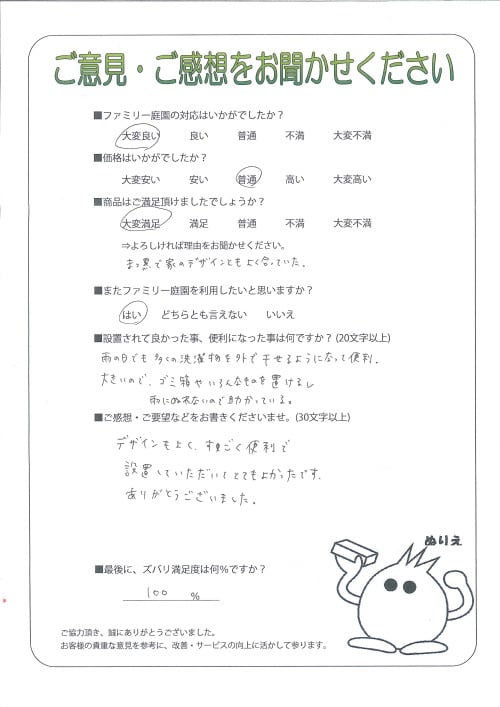 ご意見・ご感想をお聞かせください
■ファミリー庭園の対応はいかがでしたか？
大変良い　良い　普通　不満　大変不満
■価格はいかがでしたか？
大変安い　安い　普通　高い　大変高い
■商品はご満足頂けましたでしょうか？
大変満足　満足　普通　不満　大変不満
⇒よろしければ理由をお聞かせください。
まっ黒で家のデザインともよく合っていた。
■またファミリー庭園を利用したいと思いますか？
はい　どちらとも言えない　いいえ
■設置されて良かった事、便利になった事は何ですか？(20文字以上)
雨の日でも多くの洗濯物を外で干せるようになって便利。
大きいので、ゴミ箱やいろんなものを置けるし
雨にぬれないので助かっている。
■ご感想・ご要望などをお書きくださいませ。(30文字以上)
デザインもよく、すごく便利で
設置していただいてとてもよかったです。
ありがとうございました。
ぬりえ
■最後に、ズバリ満足度は何％ですか？
100 ％
ご協力頂き、誠にありがとうございました。
お客様の貴重な意見を参考に、改善・サービスの向上に活かして参ります。